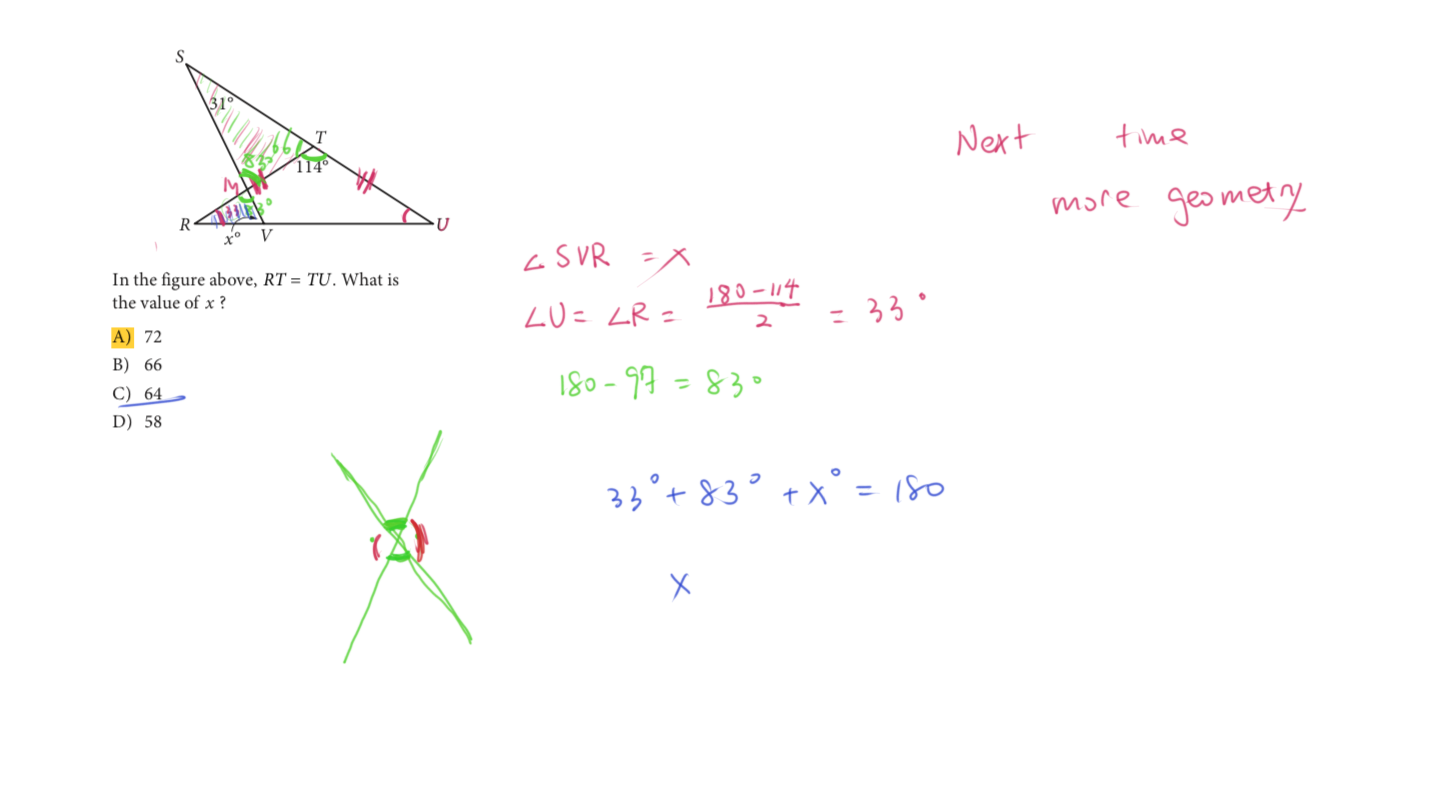 S
31°
T
66
83°
114°
M
33
83°
R
U
x°
V
In the figure above, RT = TU. What is
the value of x ?
A) 72
B) 66
C) 64
D) 58
Next time
more geometry
∠SVR = x
∠U = ∠R = 180-114 / 2 = 33°
180 - 97 = 83°
33° + 83° + x° = 180
x